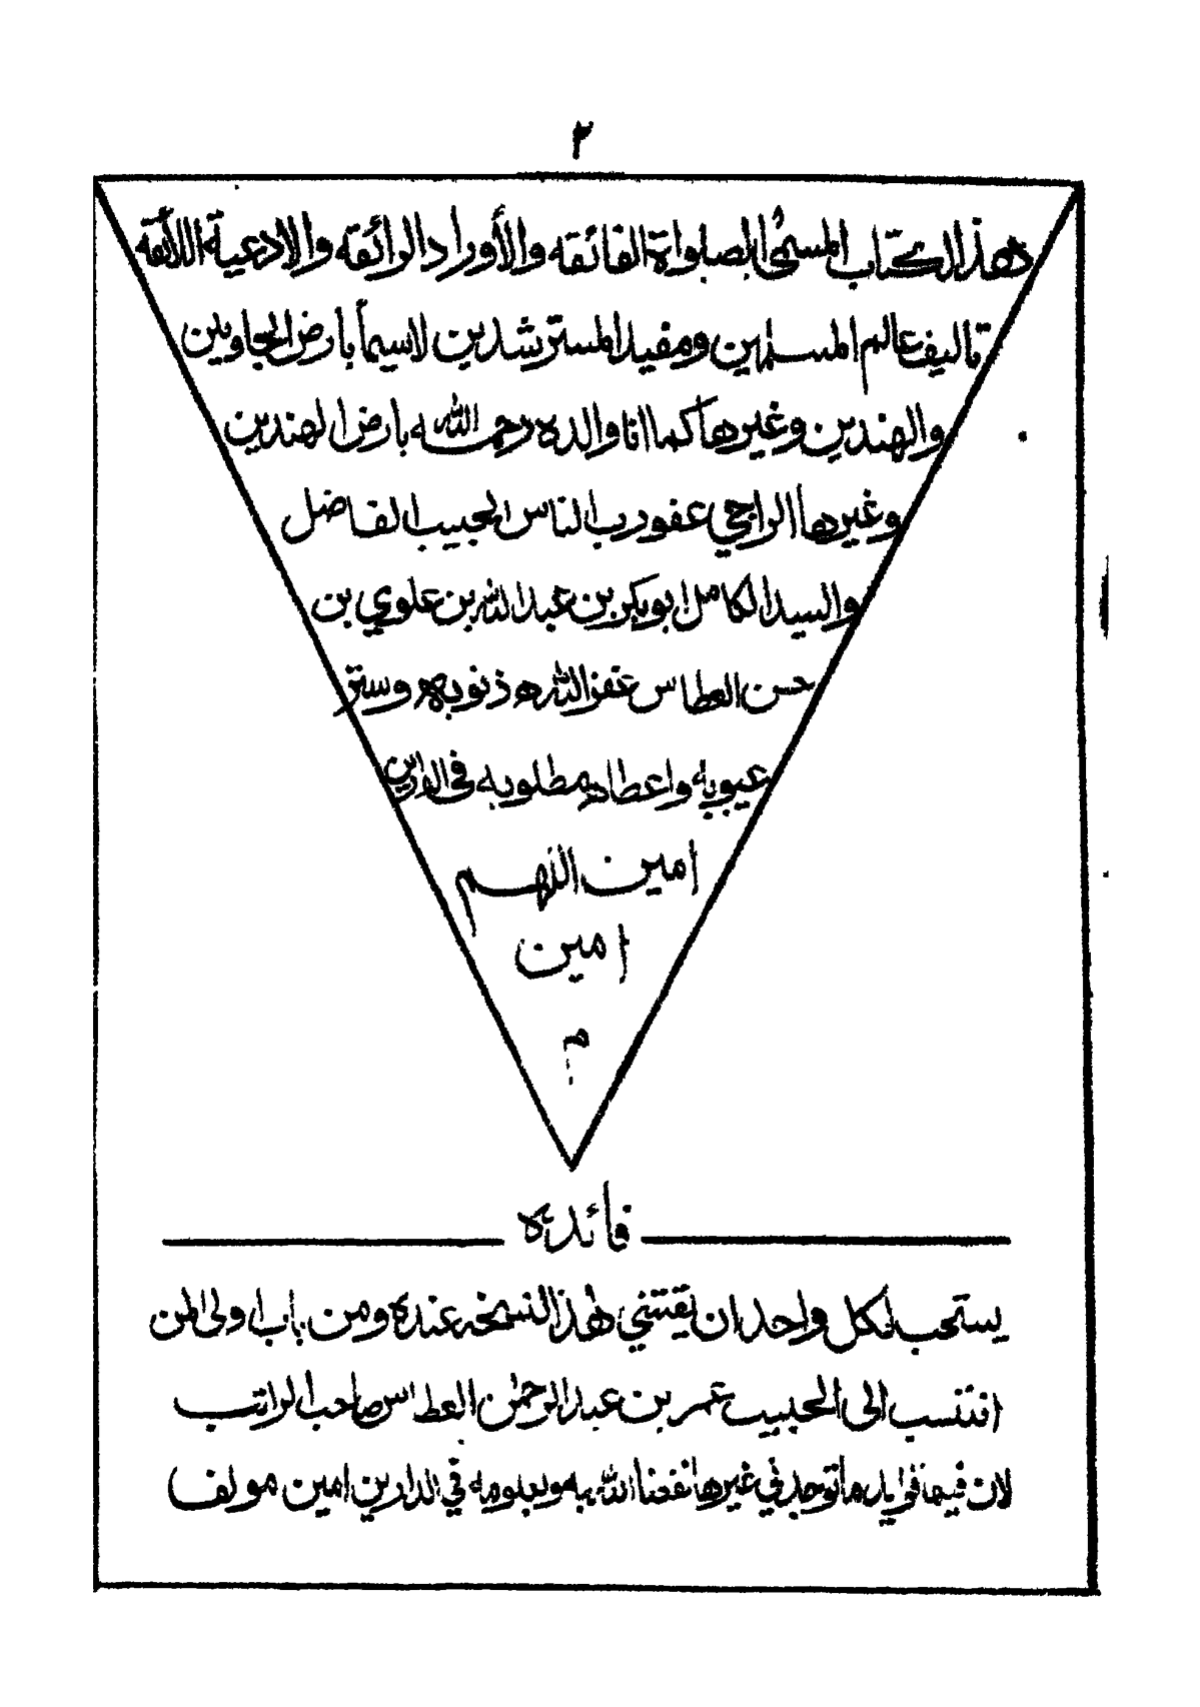 ٢
هذا الكتاب المسمى الصلواة الفائقه والأوراد الرائقه والادعية اللائقه
تأليف عالم المسلمين ومفيد المسترشدين لاسيما بأرض الجاويين
والهندين وغيرها كما انا والده رحمه الله بارض الهندين
وغيرها الراجي عفو رب الناس الحبيب الفاضل
والسيد الكامل ابوبكر بن عبد الله بن علوي بن
حسن العطاس غفر الله ذنوبه وستر
عيوبه واعطاه مطلوبه في الدارين
امين اللهم
امين
م
فائده
يستحب لكل واحد ان يقتني لهذا النسخه عنده ومن باب اولى لمن
انتسب الى الحبيب عمر بن عبد الرحمن العطاس صاحب الراتب
لان فيها فوايد ما توجد في غيرها نفعنا الله به وبعلومه في الدارين امين مولف)